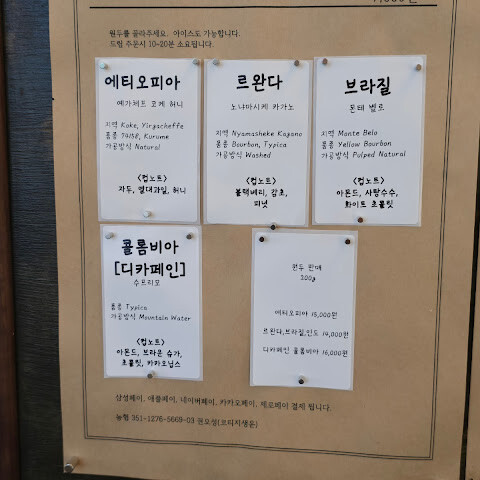 원두를 골라주세요. 아이스도 가능합니다.
드립 주문시 10~20분 소요됩니다.
에티오피아
예가체프 코케 허니
지역 Koke, Yirgacheffe
품종 74158, Kurume
가공방식 Natural
<컵노트>
자두, 열대과일, 허니
르완다
노냐마시케 카가노
지역 Nyamasheke Kagano
품종 Bourbon, Typica
가공방식 Washed
<컵노트>
블랙베리, 감초,
피넛
브라질
몬테 벨로
지역 Monte Belo
품종 Yellow Bourbon
가공방식 Pulped Natural
<컵노트>
아몬드, 사탕수수,
화이트 초콜릿
콜롬비아
[디카페인]
수프리모
품종 Typica
가공방식 Mountain Water
<컵노트>
아몬드, 브라운 슈가,
초콜릿, 카카오닙스
원두 판매
200g
에티오피아 15,000원
르완다,브라질,인도 14,000원
디카페인 콜롬비아 16,000원
삼성페이, 애플페이, 네이버페이, 카카오페이, 제로페이 결제 됩니다.
농협 351-1276-5669-03